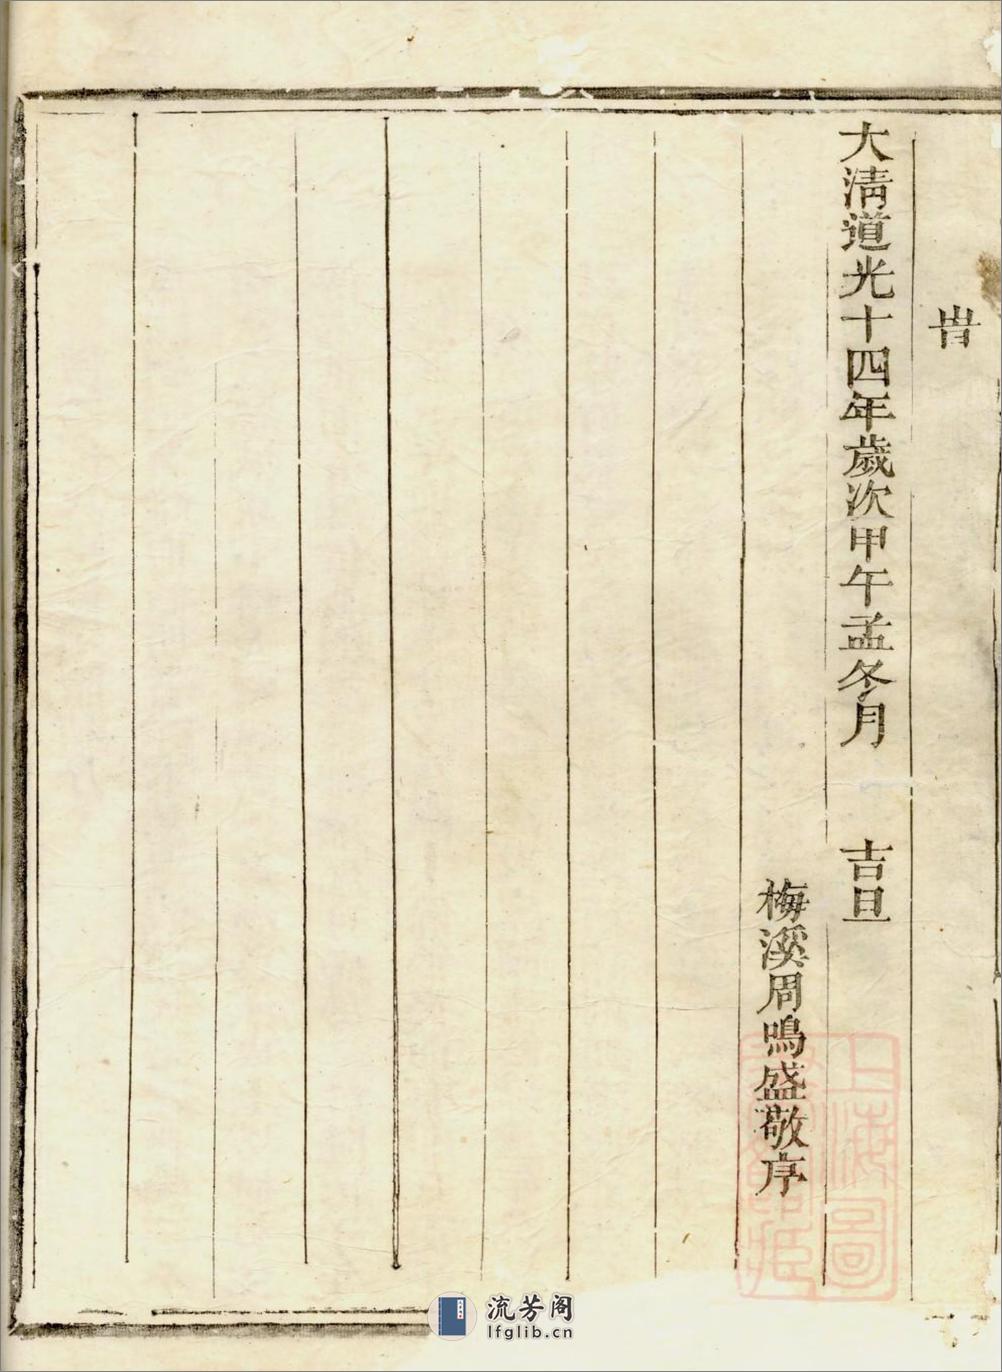 旹
大清道光十四年歲次甲午孟冬月 吉旦
梅溪周鳴盛敬序
上海圖書館藏
流芳阁
lfglib.cn